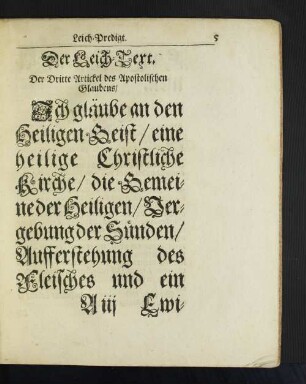 Leich-Predigt. 5
Der Leich-Text.
Der Dritte Artickel des Apostolischen
Glaubens/
Ich gläube an den
Heiligen-Geist/eine
heilige Christliche
Kirche/ die Gemei-
ne der Heiligen/Ver-
gebung der Sünden/
Aufferstehung des
Fleisches und ein
A iij Ewi-